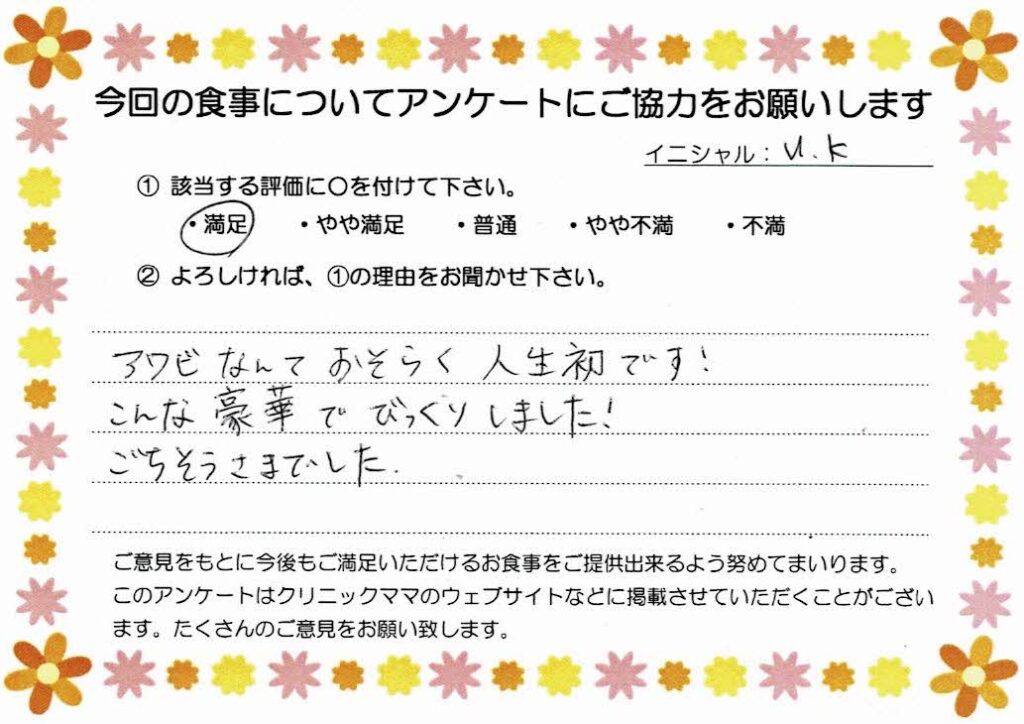 今回の食事についてアンケートにご協力をお願いします
イニシャル：U.K
① 該当する評価に〇を付けて下さい。
・満足 ・やや満足 ・普通 ・やや不満 ・不満
② よろしければ、①の理由をお聞かせ下さい。
アワビなんて おそらく 人生初です!
こんな豪華で びっくりしました!
ごちそうさまでした.
ご意見をもとに今後もご満足いただけるお食事をご提供出来るよう努めてまいります。
このアンケートはクリニックママのウェブサイトなどに掲載させていただくことがござい
ます。たくさんのご意見をお願い致します。